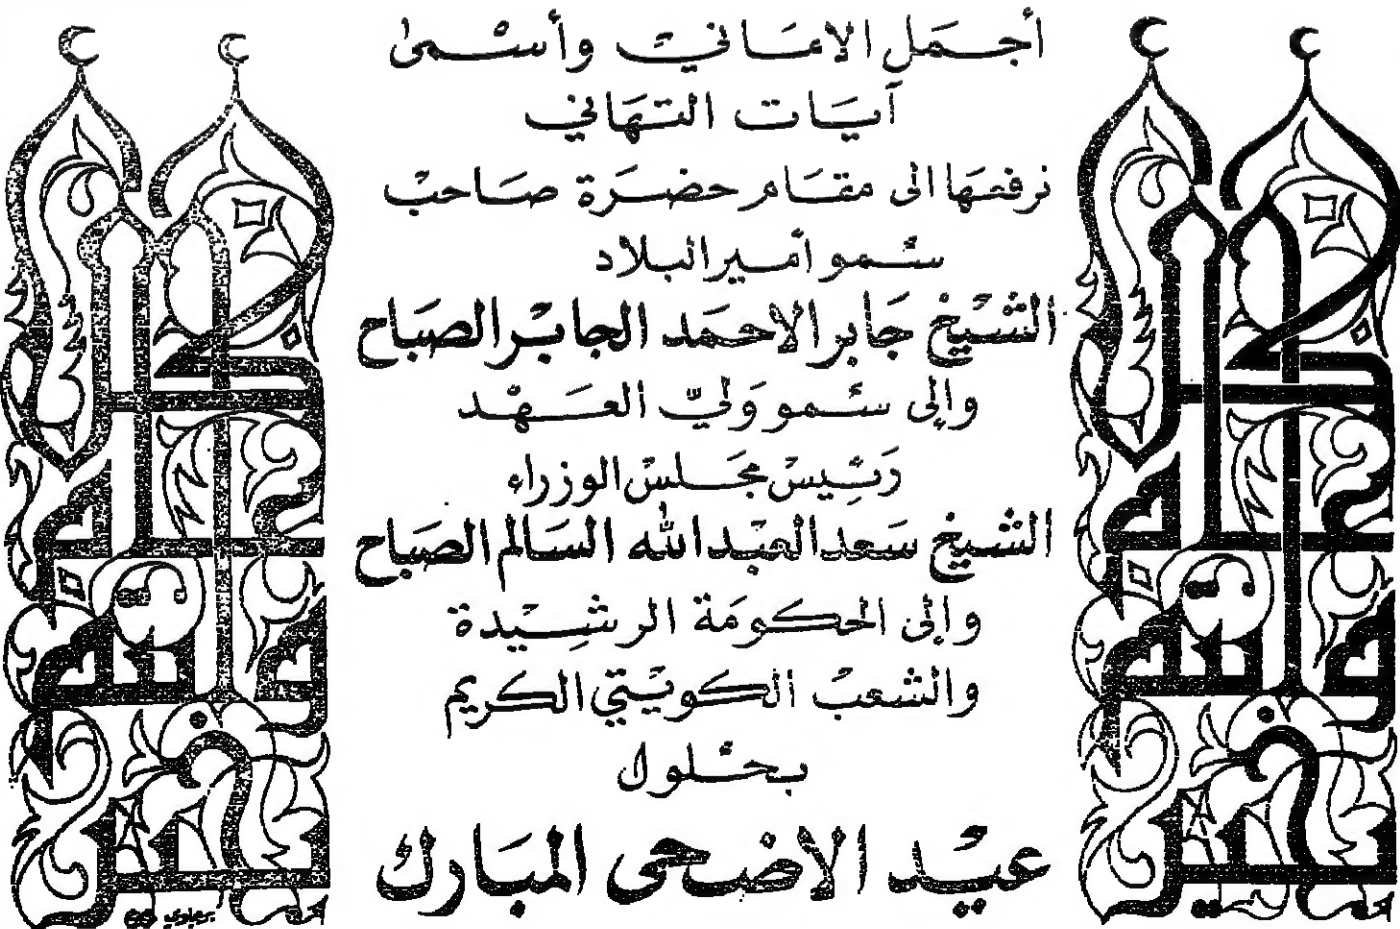 أجمل الاماني وأسمى
آيات التهاني
نرفعها الى مقام حضرة صاحب
سمو أمير البلاد
الشيخ جابر الاحمد الجابر الصباح
وإلى سمو ولي العهد
رئيس مجلس الوزراء
الشيخ سعد العبد الله السالم الصباح
وإلى الحكومة الرشيدة
والشعب الكويتي الكريم
بحلول
عيد الاضحى المبارك